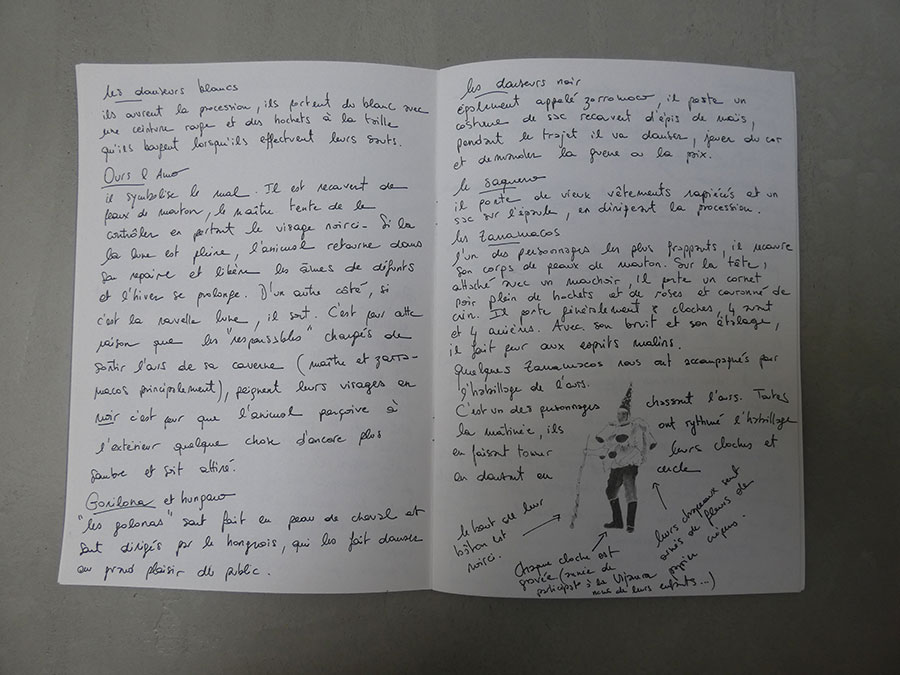 les danseurs blancs
ils ouvrent la procession, ils portent du blanc avec
une ceinture rouge et des hochets à la taille
qu'ils bougent lorsqu'ils effectuent leurs sauts.
Ours & Amo
il symbolise le mal. Il est recouvert de
peaux de mouton, le maître tente de le
contrôler en portant le visage noirci. Si la
la lune est pleine, l'animal retourne dans
sa repaire et libère les âmes de défunts
et l'hiver se prolonge. D'un autre côté, si
c'est la nouvelle lune, il sort. C'est pour cette
raison que les "responsables" chargés de
sortir l'ours de sa caverne (maître et zarra-
macos principalement), peignent leurs visages en
noir c'est pour que l'animal perçoive à
l'extérieur quelque chose d'encore plus
sombre et soit attiré.
Gorilona et hungaro
"les golonas" sont fait en peau de cheval et
sont dirigés par le hongrois, qui les fait danser
au grand plaisir du public.
les danseurs noir
également appelé zorromoco, il porte un
costume de sac recouvert d'épis de maïs,
pendant le trajet il va danser, jouer du cor
et demander la guerre ou la paix.
le saquero
il porte de vieux vêtements rapiécés et un
sac sur l'épaule, en dirigeant la procession.
les Zanamacos
l'un des personnages les plus frappants, il recouvre
son corps de peaux de mouton. Sur la tête,
attaché avec un mouchoir, il porte un cornet
noir plein de hochets et de roses et couronné de
crin. Il porte généralement 8 cloches, 4 avant
et 4 arrières. Avec son bruit et son étalage,
il fait peur aux esprits malins.
Quelques Zanamacos nous ont accompagnés par
l'habillage de l'ours.
C'est un des personnages chassant l'ours. Toutes
la matinée, ils ont rythmé l'habillage
en faisant tonner leurs cloches et
en dansant en cercle
le bout de leur
bâton est
noirci.
Chaque cloche est
gravée (année de
participat à la Vijanera
nom de leurs enfants...)
leurs chapeaux sont
ornés de fleurs de
papier crépon.